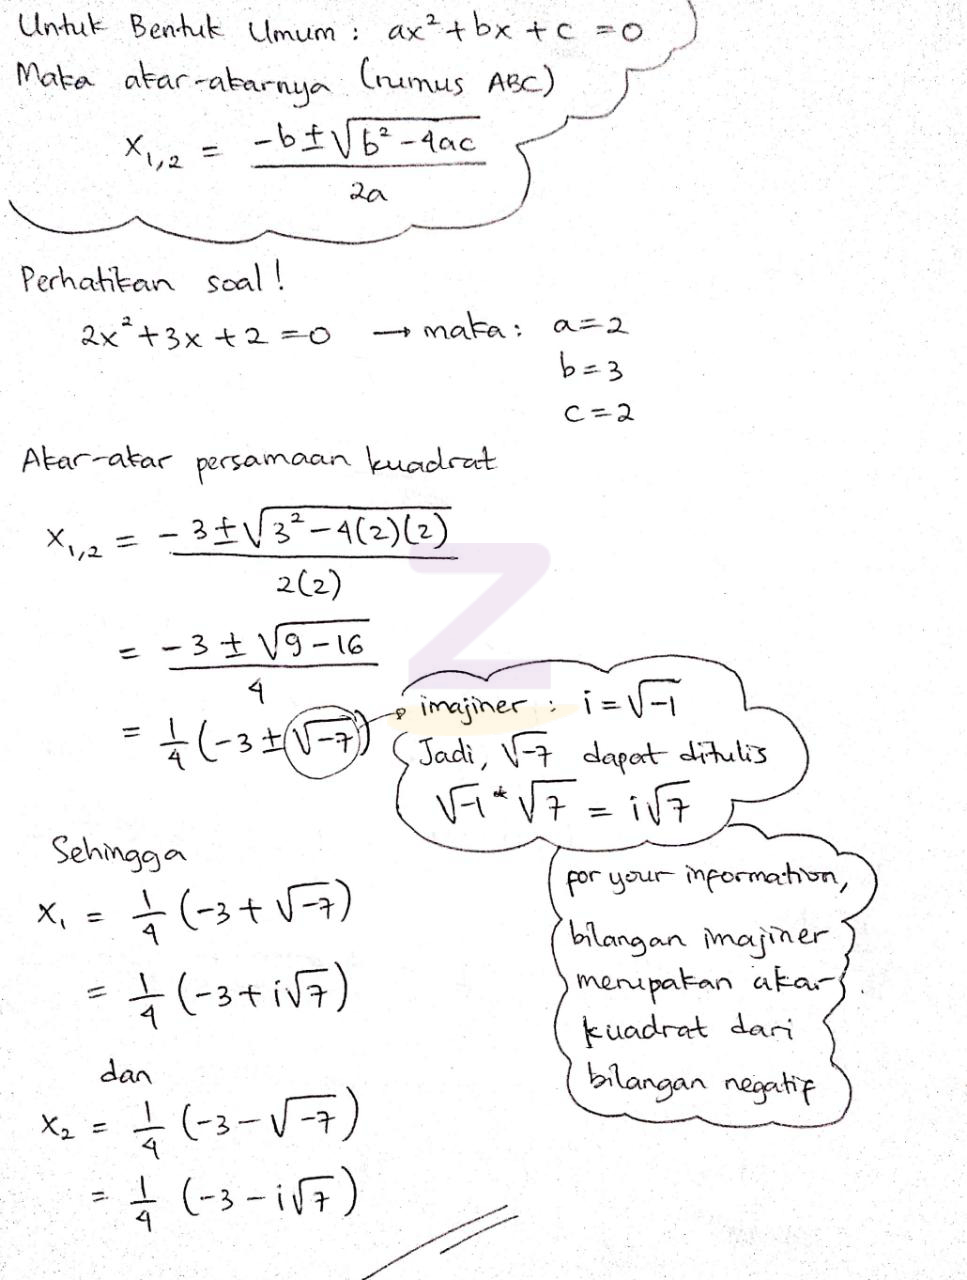 Untuk Bentuk Umum : ax² + bx + c = 0
Maka akar-akarnya (rumus ABC)
x₁,₂ = (-b ± √(b² - 4ac)) / 2a
Perhatikan soal !
2x² + 3x + 2 = 0 → maka : a = 2
b = 3
c = 2
Akar-akar persamaan kuadrat
x₁,₂ = (-3 ± √(3² - 4(2)(2))) / 2(2)
= (-3 ± √(9 - 16)) / 4
= 1/4 (-3 ± √-7)
imajiner : i = √-1
Jadi, √-7 dapat ditulis
√-1 * √7 = i√7
Sehingga
x₁ = 1/4 (-3 + √-7)
= 1/4 (-3 + i√7)
dan
x₂ = 1/4 (-3 - √-7)
= 1/4 (-3 - i√7)
for your information,
bilangan imajiner
merupakan akar
kuadrat dari
bilangan negatif
Z